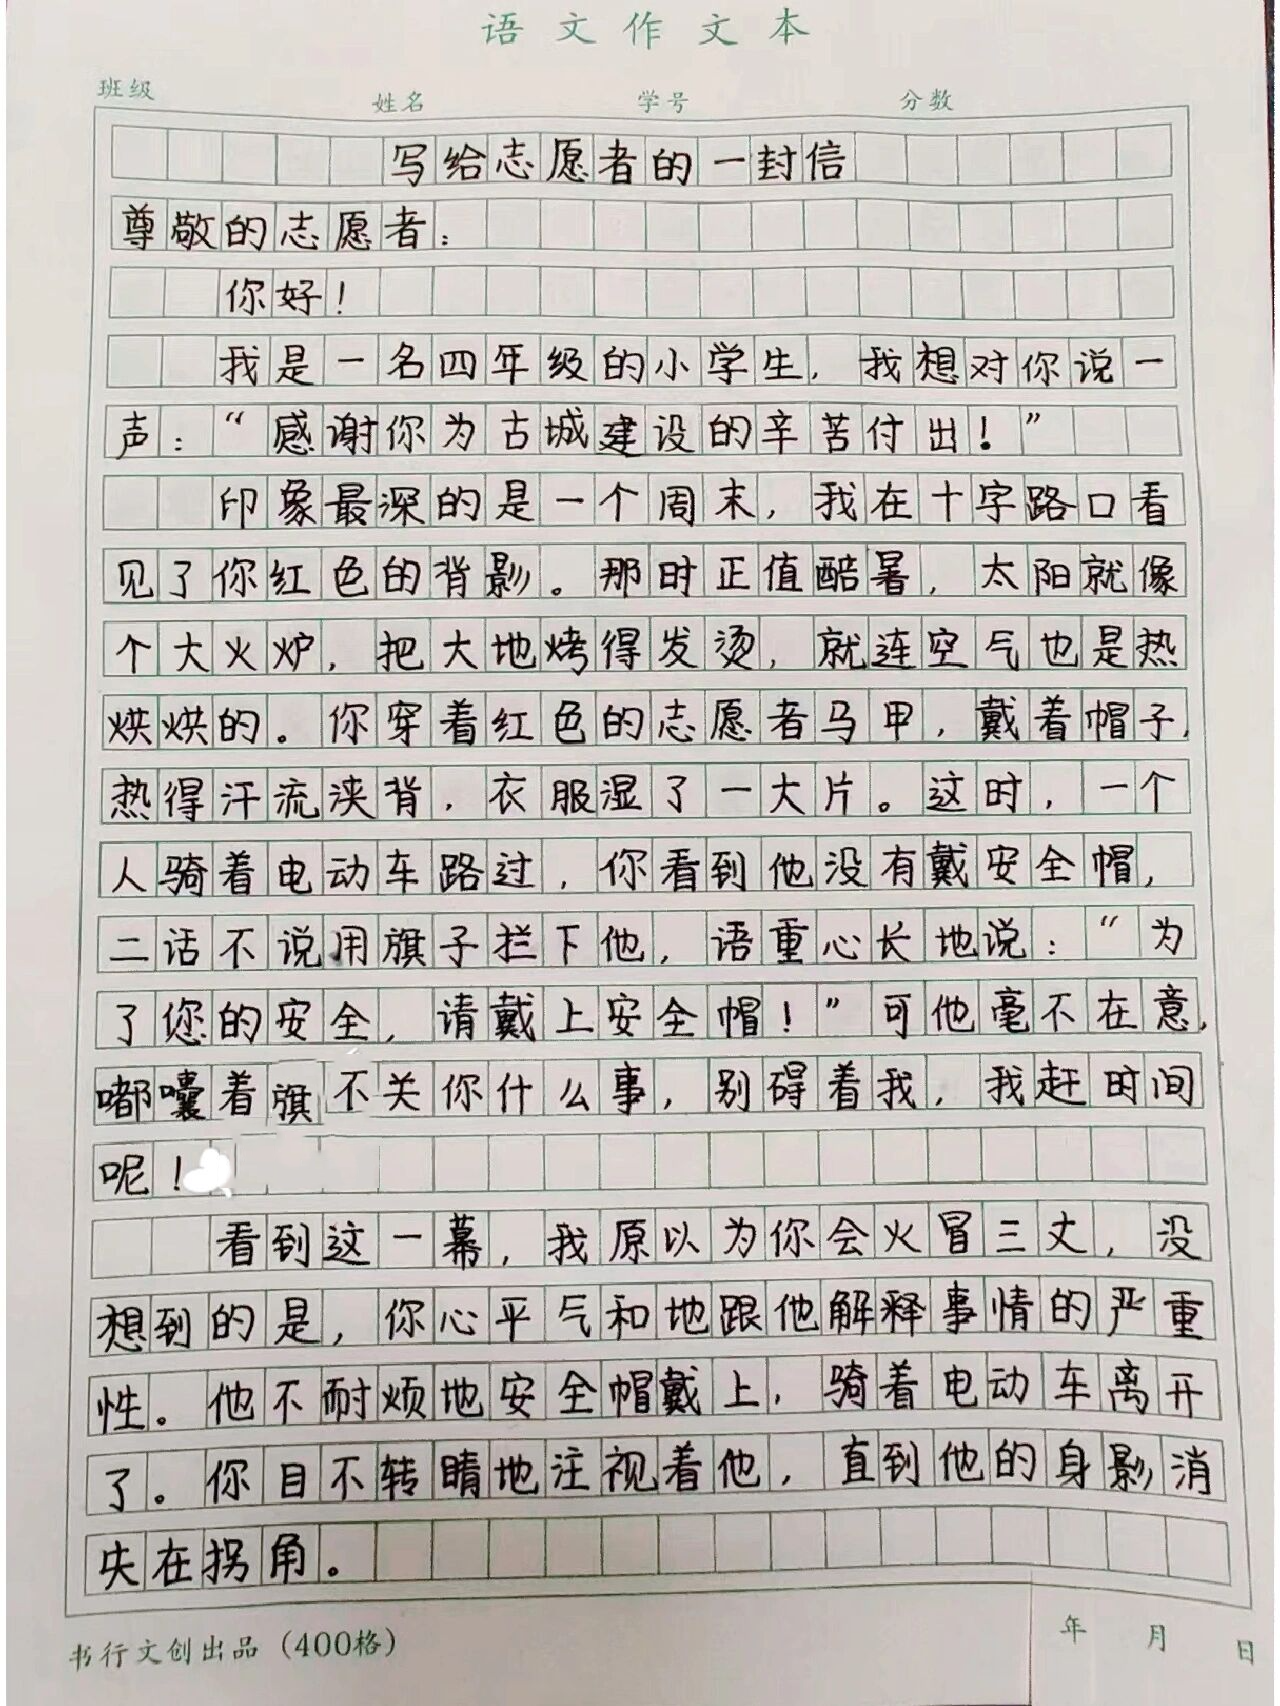 语文作文本
班级 姓名 学号 分数
写给志愿者的一封信
尊敬的志愿者：
你好！
我是一名四年级的小学生，我想对你说一
声：“感谢你为古城建设的辛苦付出！”
印象最深的是一个周末，我在十字路口看
见了你红色的背影。那时正值酷暑，太阳就像
个大火炉，把大地烤得发烫，就连空气也是热
烘烘的。你穿着红色的志愿者马甲，戴着帽子，
热得汗流浃背，衣服湿了一大片。这时，一个
人骑着电动车路过，你看到他没有戴安全帽，
二话不说用旗子拦下他，语重心长地说：“为
了您的安全，请戴上安全帽！”可他毫不在意，
嘟囔着旗不关你什么事，别碍着我，我赶时间
呢！
看到这一幕，我原以为你会火冒三丈，没
想到的是，你心平气和地跟他解释事情的严重
性。他不耐烦地安全帽戴上，骑着电动车离开
了。你目不转睛地注视着他，直到他的身影消
失在拐角。
书行文创出品（400格） 年 月 日